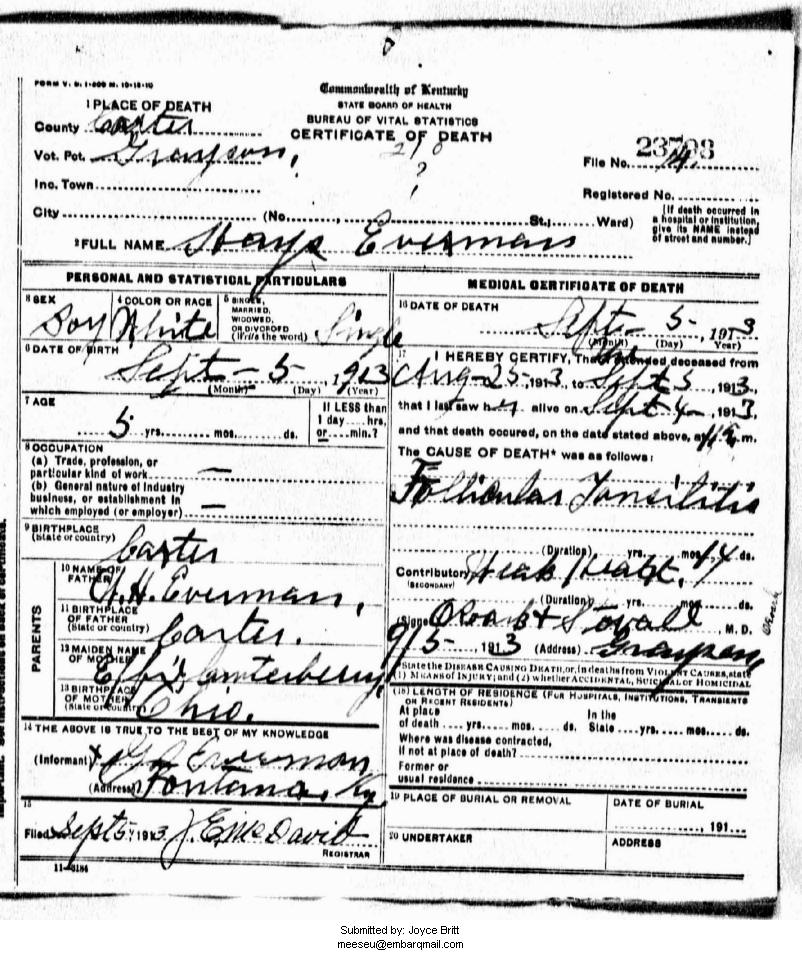 FORM V. S. 1-
Commonwealth of Kentucky
STATE BOARD OF HEALTH
BUREAU OF VITAL STATISTICS
CERTIFICATE OF DEATH
1 PLACE OF DEATH
County Carter
Vot. Pct. Grayson,
Inc. Town
City (No. , St.; Ward)
210
?
File No. 14
Registered No.
[If death occurred in
a hospital or institution,
give its NAME instead
of street and number.]
2 FULL NAME Hays Everman
PERSONAL AND STATISTICAL PARTICULARS
3 SEX Boy
4 COLOR OR RACE White
5 SINGLE,
MARRIED,
WIDOWED,
OR DIVORCED
(Write the word) Single
6 DATE OF BIRTH
Sept - 5 1913
(Month) (Day) (Year)
7 AGE
5 yrs. mos. ds.
If LESS than
1 day hrs.
or min.?
8 OCCUPATION
(a) Trade, profession, or
particular kind of work —
(b) General nature of industry
business, or establishment in
which employed (or employer) —
9 BIRTHPLACE
(State or country) Carter
PARENTS
10 NAME OF
FATHER Everman,
11 BIRTHPLACE
OF FATHER
(State or country) Carter.
12 MAIDEN NAME
OF MOTHER Canterberry
13 BIRTHPLACE
OF MOTHER
(State or country) Ohio.
14 THE ABOVE IS TRUE TO THE BEST OF MY KNOWLEDGE
(Informant) Everman
(Address) Fontana, Ky
15
Filed Sept 5, 1913. J. E. McDavid
REGISTRAR
MEDICAL CERTIFICATE OF DEATH
16 DATE OF DEATH
Sept - 5 - 1913
(Month) (Day) Year)
17 I HEREBY CERTIFY, That I attended deceased from
Aug - 25, 1913, to Sept 5, 1913,
that I last saw h alive on Sept 4, 1913,
and that death occured, on the date stated above, at m.
The CAUSE OF DEATH* was as follows:
Follicular Tonsilitis
(Duration) yrs. mos. 14 ds.
Contributory Weak Heart.
(SECONDARY)
(Duration) yrs. mos. ds.
(Signed) & Stovall M. D.
9/5-, 1913 (Address) Grayson
*State the DISEASE CAUSING DEATH, or, in deaths from VIOLENT CAUSES, state
(1) MEANS OF INJURY; and (2) whether ACCIDENTAL, SUICIDAL OR HOMICIDAL
(18) LENGTH OF RESIDENCE (FOR HOSPITALS, INSTITUTIONS, TRANSIENTS
OR RECENT RESIDENTS)
At place
of death yrs. mos. ds.
In the
State yrs. mos. ds.
Where was disease contracted,
if not at place of death?
Former or
usual residence
19 PLACE OF BURIAL OR REMOVAL
DATE OF BURIAL
, 191
20 UNDERTAKER
ADDRESS
Submitted by: Joyce Britt
meeseu@embarqmail.com